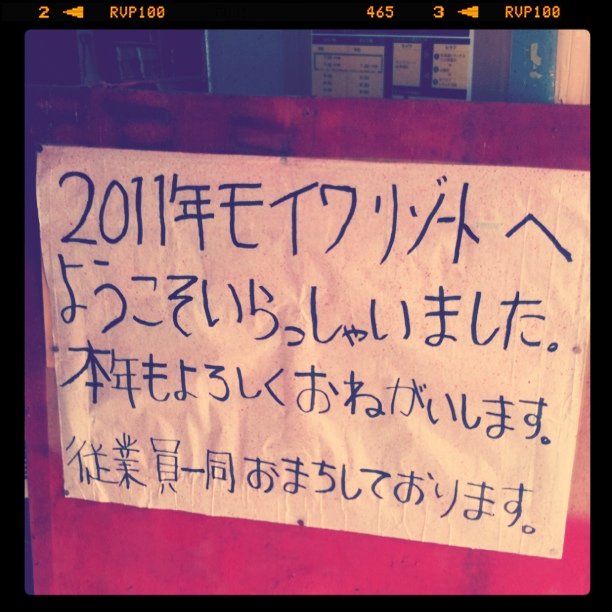 2 RVP100 465 3 RVP100
2011年モイワリゾートへ
ようこそいらっしゃいました。
本年もよろしくおねがいします。
従業員一同おまちしております。